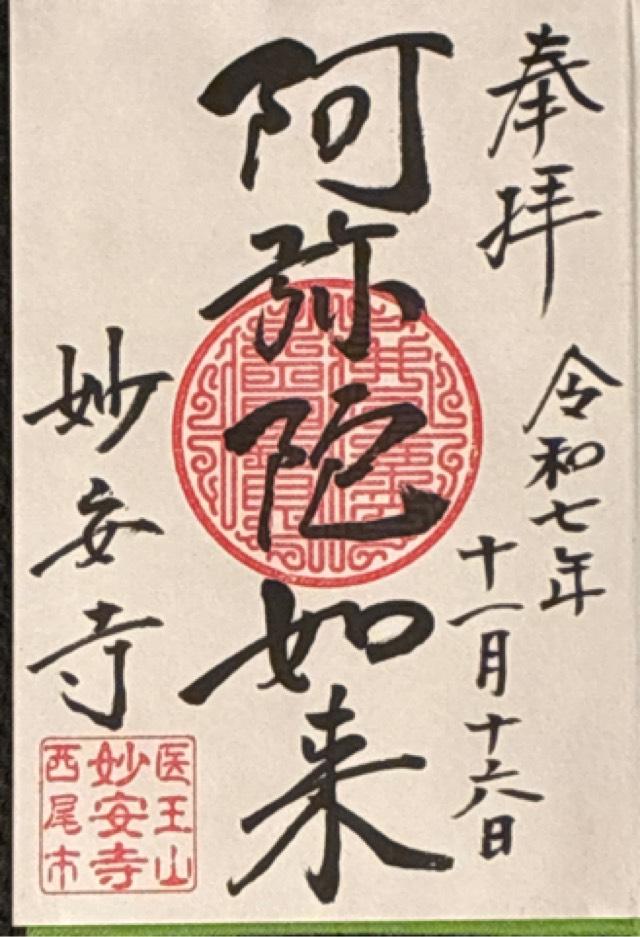 奉拝
令和七年
十一月十六日
阿弥陀如来
妙安寺
医王山
妙安寺
西尾市